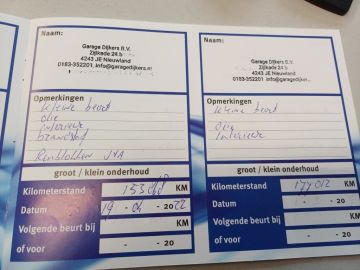 Naam:
Garage Dijkers B.V.
Zijlkade 24 b
4243 JE Nieuwland
0183-352201, info@garagedijkers.nl
Opmerkingen
kleine beurt
olie
interieur
brandstof
Remblokken V+A
groot / klein onderhoud
Kilometerstand 153 KM
Datum 19 - 04 - 2022
Volgende beurt bij KM
of voor - - 20
Naam:
Garage Dijkers B.V.
Zijlkade 24 b
4243 JE Nieuwland
info@garagedijkers.nl
Opmerkingen
kleine beurt
Olie
Interieur
groot / klein onderhoud
Kilometerstand 177 012 KM
Datum - - 20
Volgende beurt bij KM
of voor - - 20